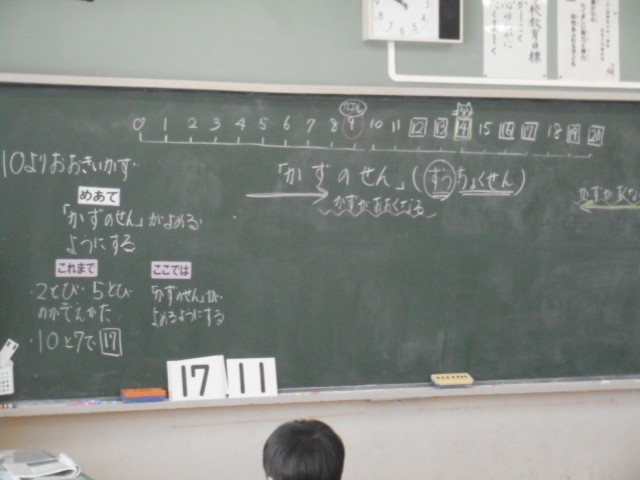 0 1 2 3 4 5 6 7 8 9 10 11 12 13 14 15 16 17 18 19 20
10よりおおきいかず
「かずのせん」(すうちょくせん)
かずがおおくなる
めあて
「かずのせん」がよめる
ようにする
これまで
・2とび・5とび
のかぞえかた
・10と7で17
ここでは
「かずのせん」が
よめるようにする
17 11